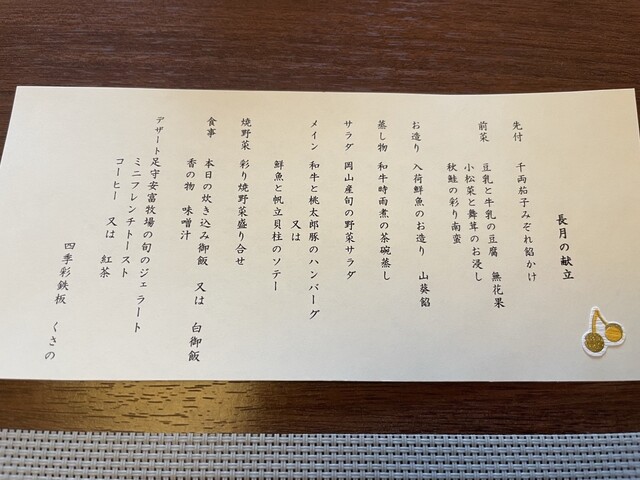 長月の献立
先付　千両茄子みぞれ餡かけ
前菜　豆乳と牛乳の豆腐　無花果
小松菜と舞茸のお浸し
秋鮭の彩り南蛮
お造り　入荷鮮魚のお造り　山葵餡
蒸し物　和牛時雨煮の茶碗蒸し
サラダ　岡山産旬の野菜サラダ
メイン　和牛と桃太郎豚のハンバーグ
又は
鮮魚と帆立貝柱のソテー
焼野菜　彩り焼野菜盛り合せ
食事　本日の炊き込み御飯　又は　白御飯
香の物　味噌汁
デザート　足守安富牧場の旬のジェラート
ミニフレンチトースト
コーヒー　又は　紅茶
四季彩鉄板　くさの